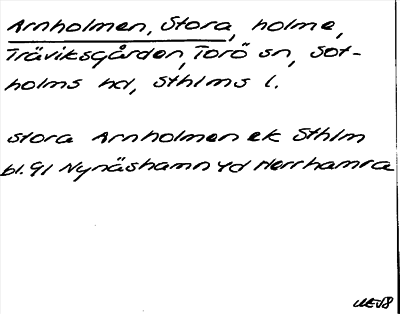 Arnholmen, Stora, holme,
Träviksgården, Torö sn, Sot-
holms hd, Sthlms l.
Stora Arnholmen ek Sthlm
bl. 91 Nynäshamn yd Herrhamra